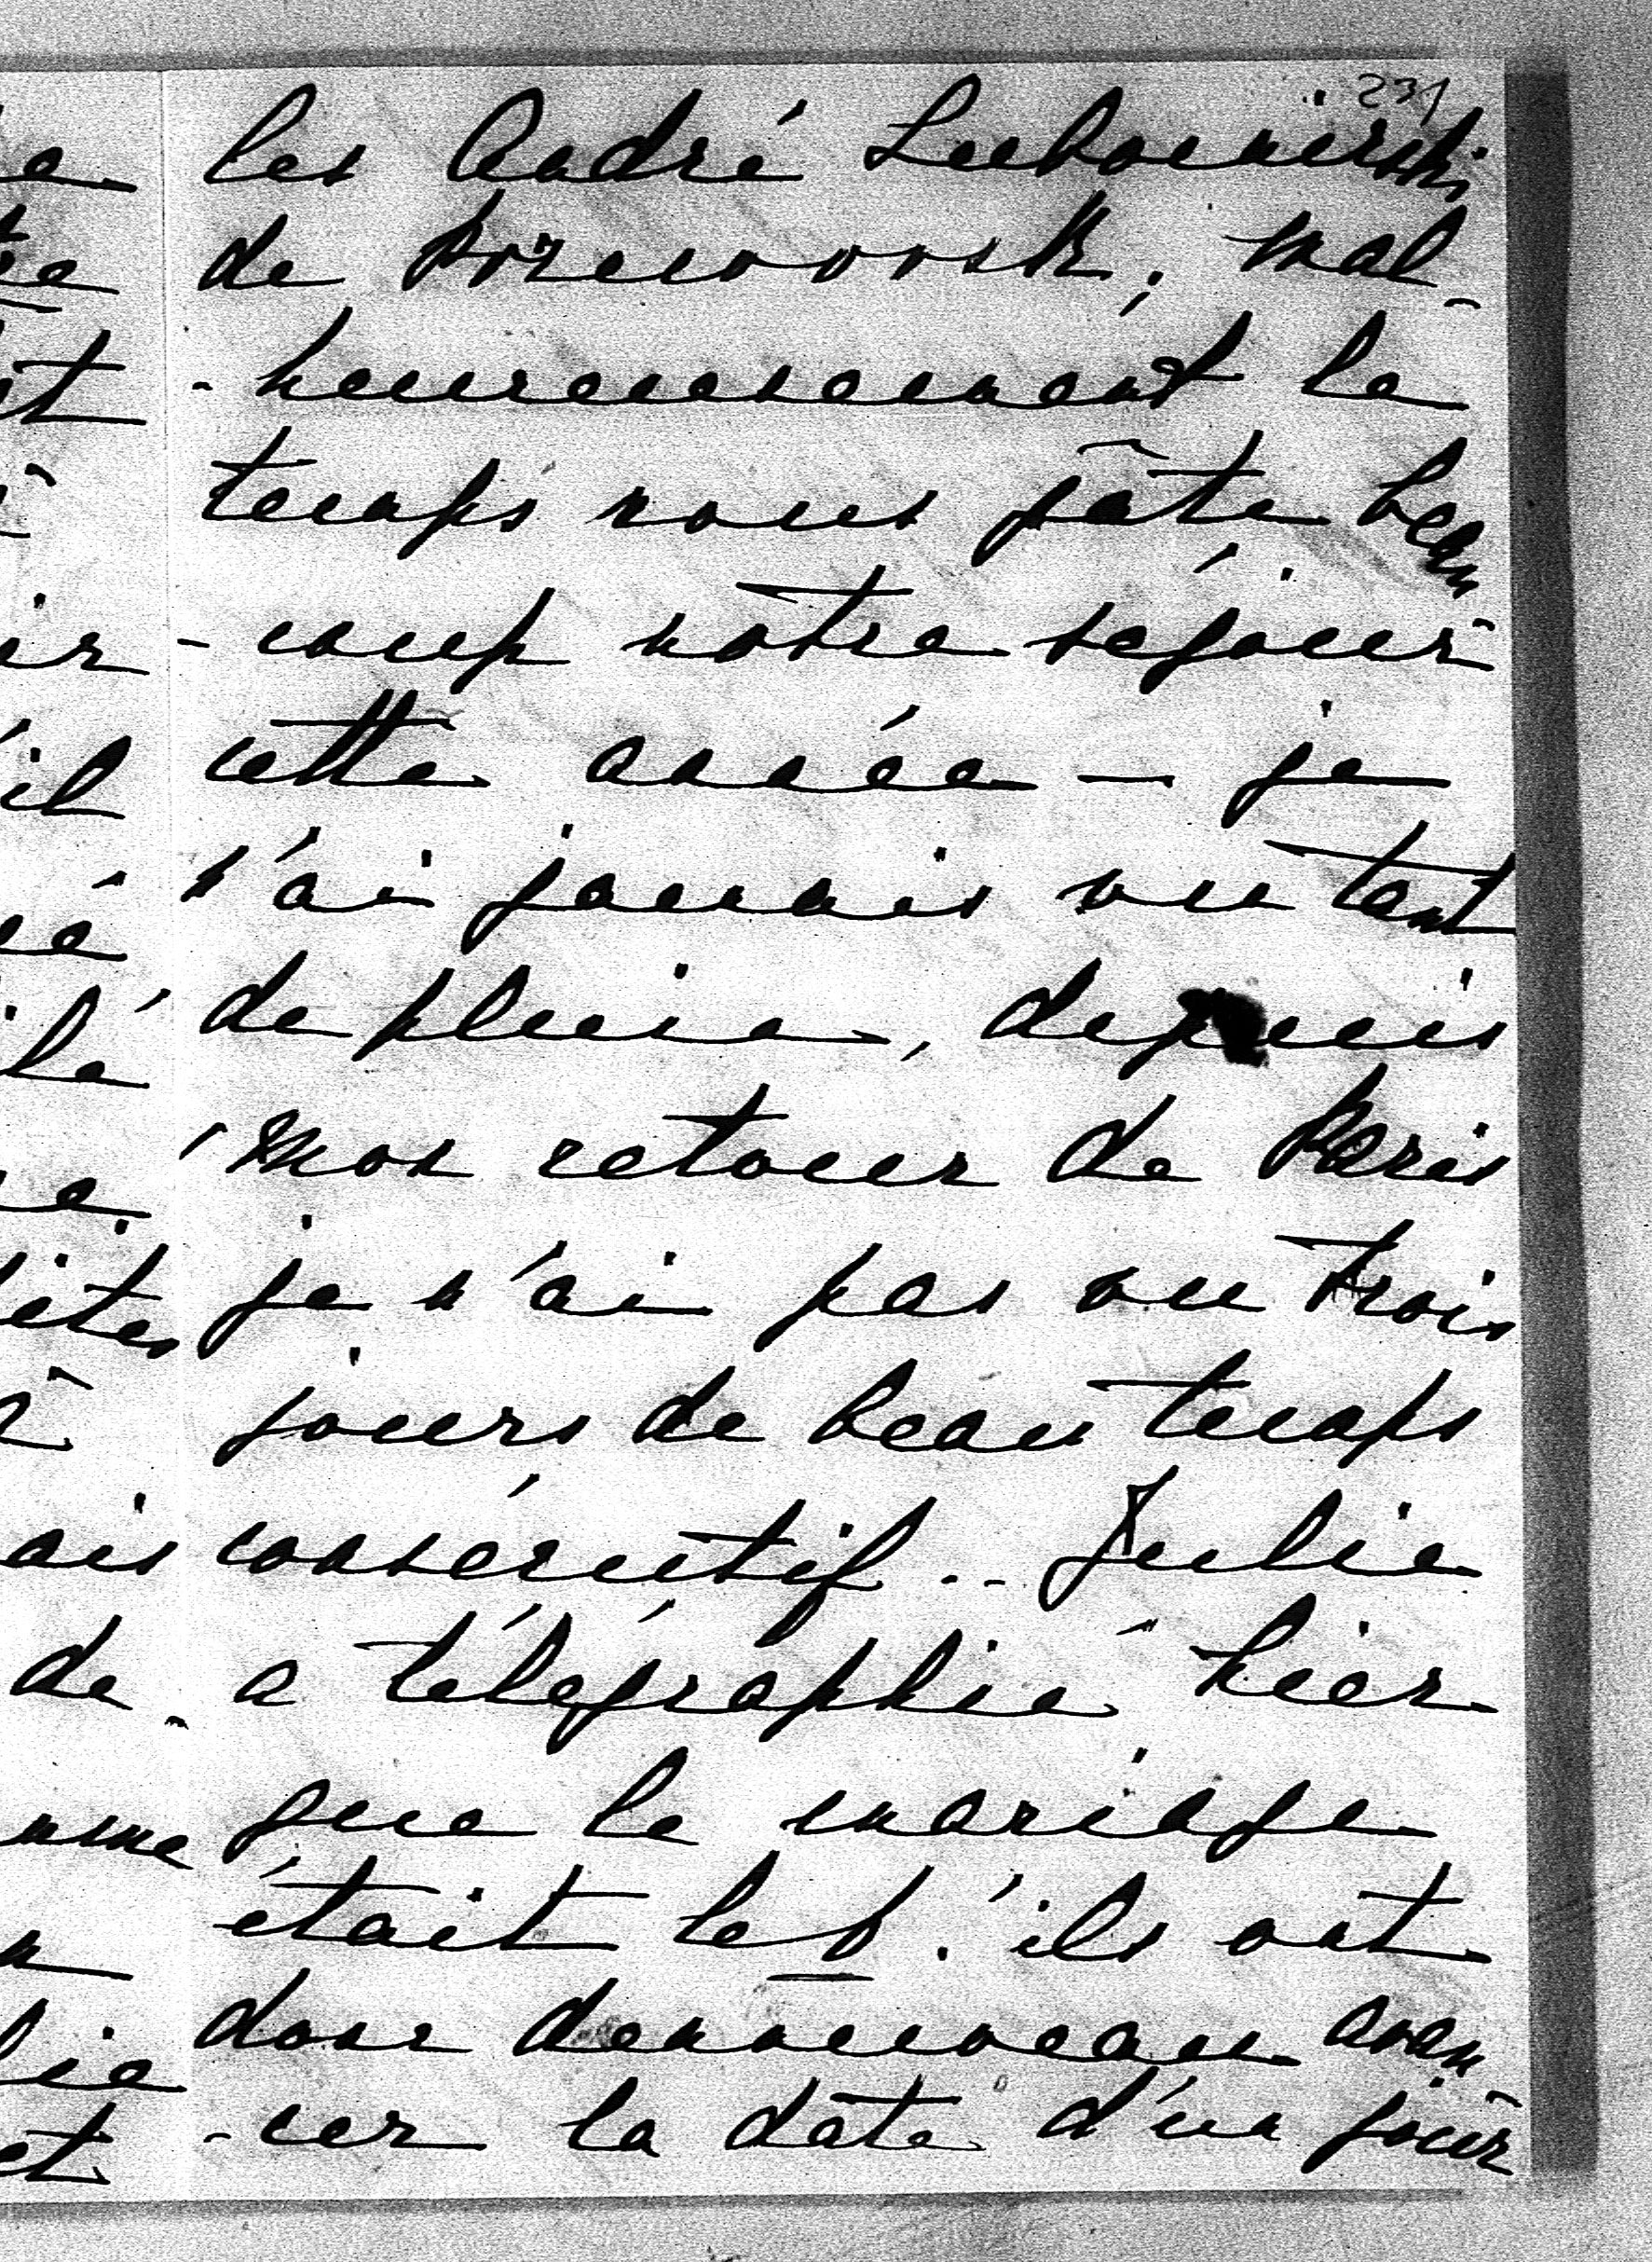 231
les André Lubomirski
de Przeworsk, mal-
-heureusement le
temps nous gâte beau
-coup notre séjour
cette année - je
n'ai jamais vu tant
de pluie, depuis
mon retour de Paris
je n'ai pas vu trois
jours de beau temps
consécutif .. Julie
a télégraphié hier
que le mariage
était le 8. ils ont
donc de nouveau avan
-cer la date d'un jour